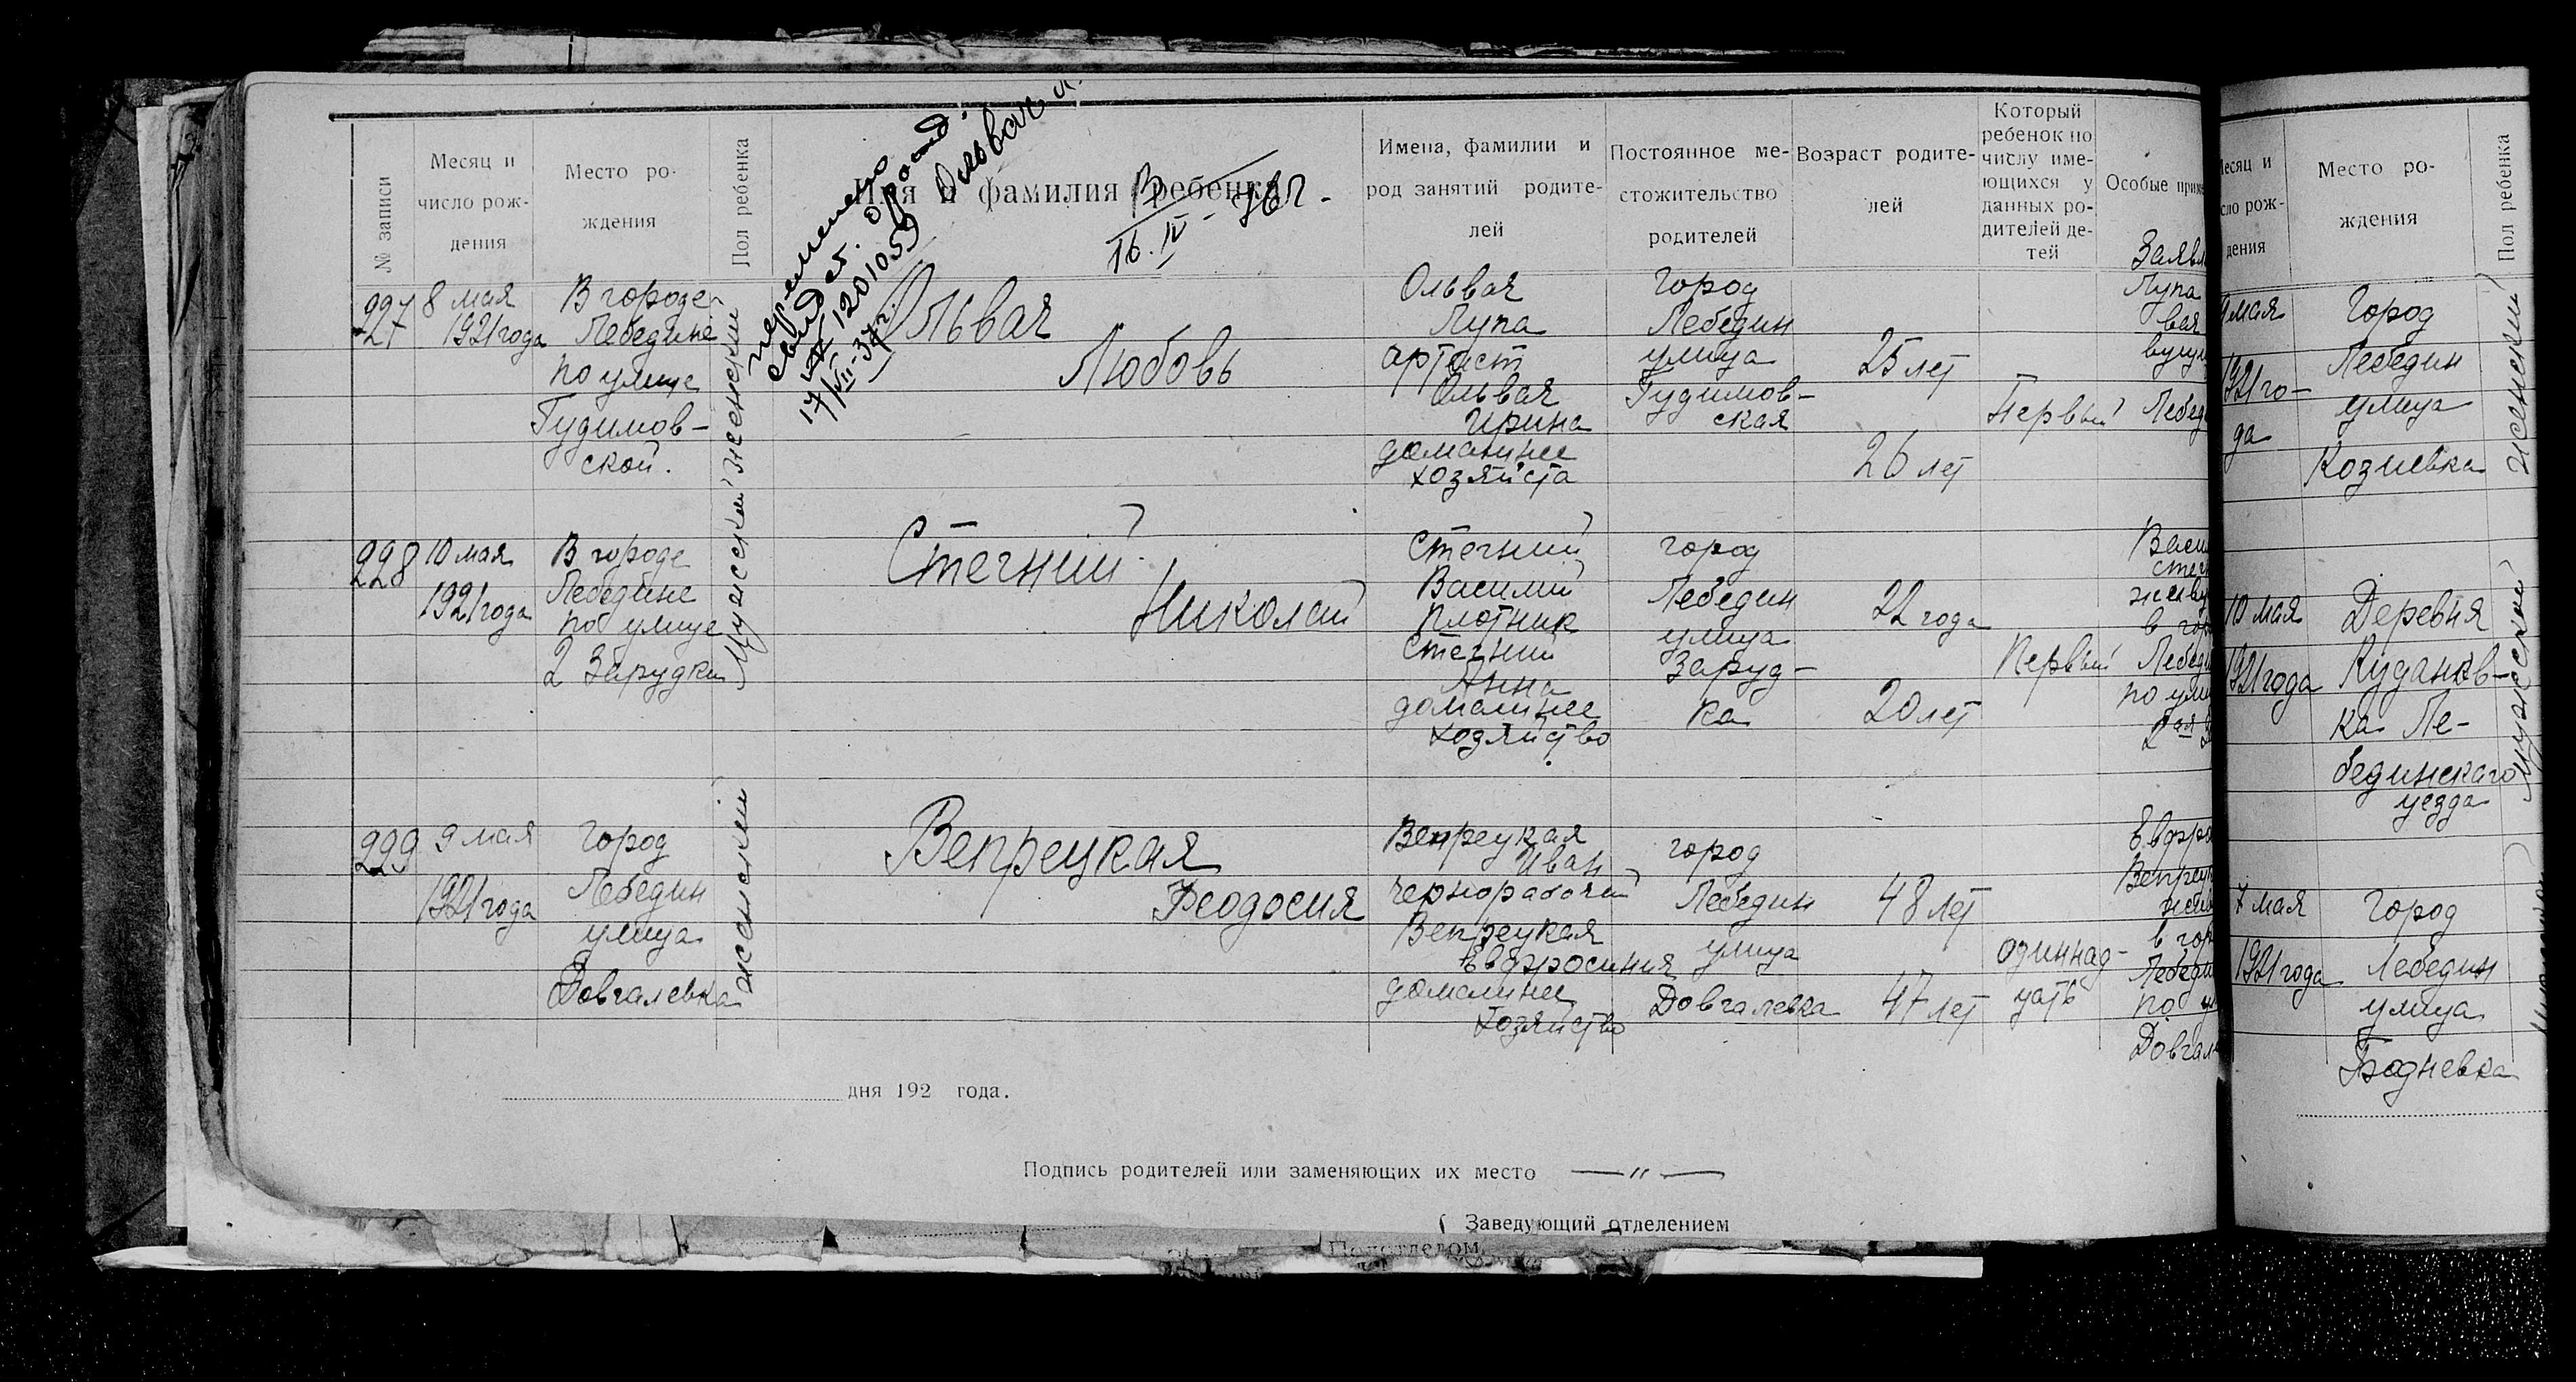 № записи
Месяц и
число рож-
дения
Место ро-
ждения
Пол ребенка
Имя и фамилия ребенка
Имена, фамилии и
род занятий родите-
лей
Постоянное ме-
стожительство
родителей
Возраст родите-
лей
Который
ребенок по
числу име-
ющихся у
данных ро-
дителей де-
тей
Особые приме
свидет. о рожд.
1201059
17/VII-37 г.
Ольвач
16. IV
227
8 мая
1921 года
В городе
Лебедине
по улице
Гудимов-
ской.
женский
Ольвач
Любовь
Ольвач
Лупа
артист
Ольвач
Ирина
домашнее
хозяйста
Город
Лебедин
улица
Гудимов-
ская
25 лет
26 лет
Первый
Заявл
Лупа
Лебед
228
10 мая
1921 года
В городе
Лебедине
по улице
2 Зарудки
Мужской
Стегний
Николай
Стегний
Василий
плотник
Стегний
Анна
домашнее
хозяйство
город
Лебедин
улица
Заруд-
ка
22 года
20 лет
Первый
Васи
Стег
живу
в гор
Лебед
по ули
2ая З
229
9 мая
1921 года
Город
Лебедин
улица
Довгалевка
женский
Вепрецкая
Феодосия
Вепрецкая
Иван
чернорабочий
Вепрецкая
Евдросиния
домашнее
хозяйство
город
Лебедин
улица
Довгалевка
48 лет
47 лет
одиннад-
цать
Евдро
Вепрец
жив
в гор
Лебеди
по ул
Довгал
дня 192 года.
Подпись родителей или заменяющих их место —„—
Заведующий отделением
Подотделом
Месяц и
сло рож-
дения
Место ро-
ждения
Пол ребенка
мая
1921 го-
да
Город
Лебедин
улица
Козиевка
женский
10 мая
1921 года
Деревня
Кудановка-
ка Ле-
бединскаго
уезда
Мужской
7 мая
1921 года
Город
Лебедин
улица
Бодневка